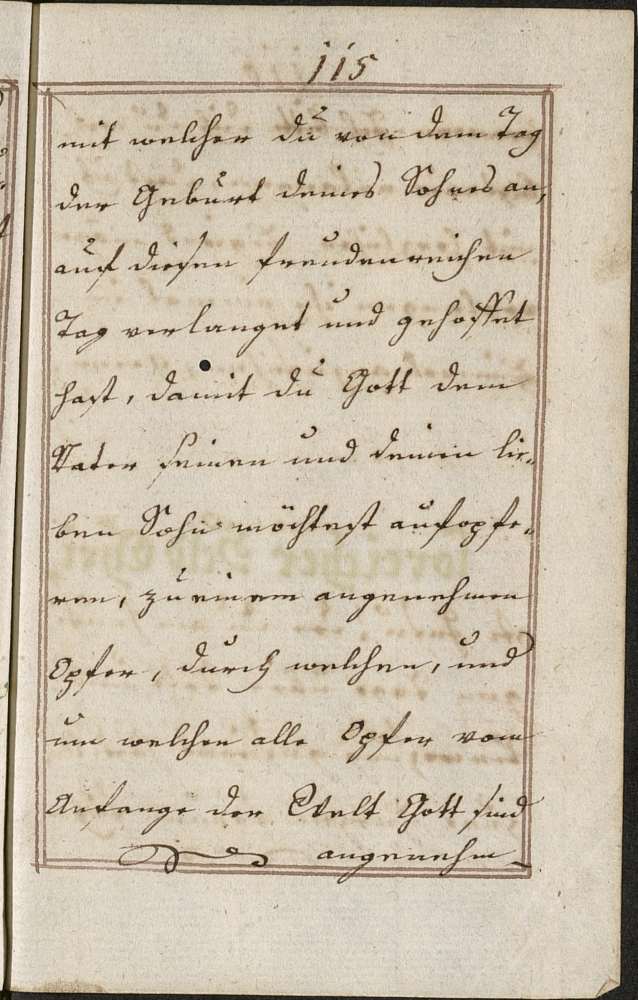 115
mit welcher du von dem Tag
der Geburt deines Sohnes an,
auf diesen freudenreichen
Tag verlanget und gehoffet
hast, damit du Gott dem
Vater seinen und deinen lie„
ben Sohn möchtest aufopfe„
ren, zu einem angenehmen
Opfer, durch welchen, und
um welchen alle Opfer vom
Anfange der Welt Gott sind
angenehm